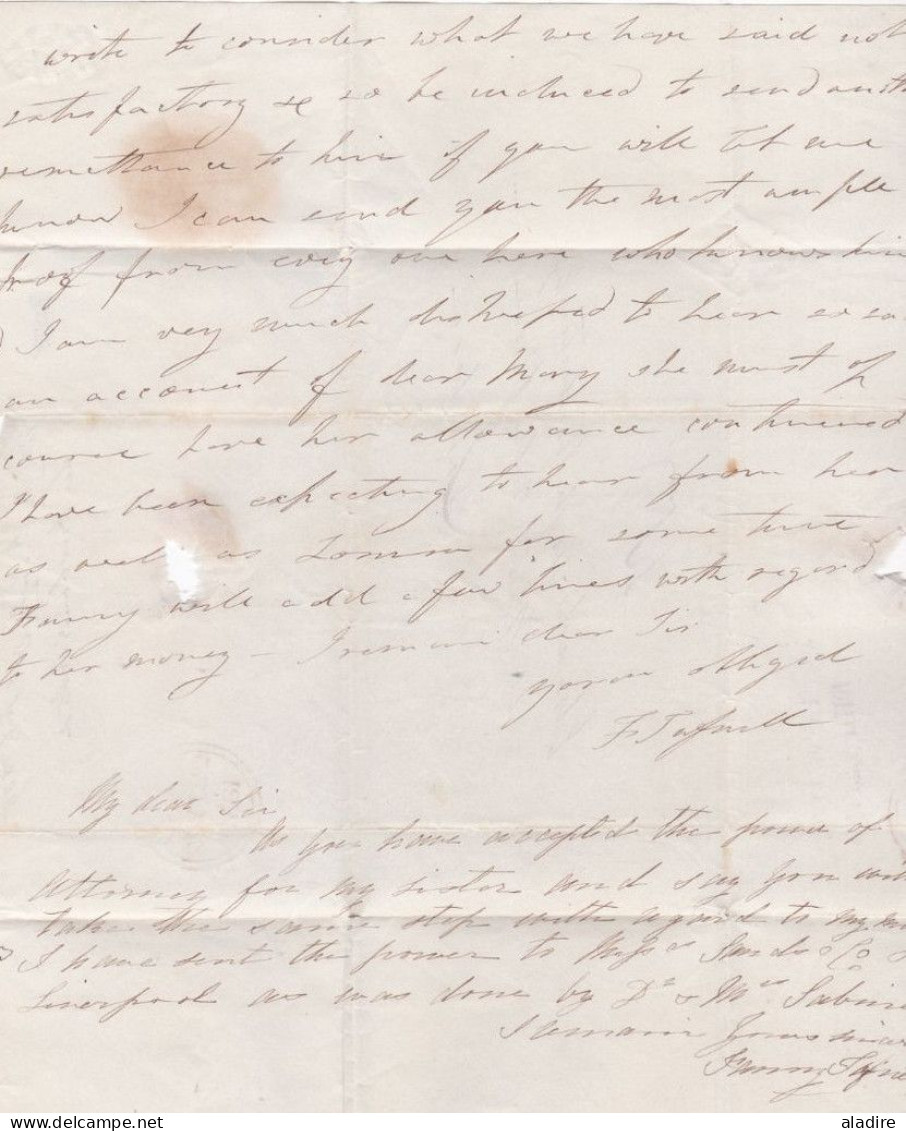 write to consider what we have said not
satisfactory & so be induced to send anoth
remittance to him if you will let me
know I can send you the most ample
proof from evey one here who knows him
I am very much distressed to hear so sad
an account of dear Mary she must of
course have her allowance continued
I have been expecting to hear from her
as well as for some time
Fanny will add a few lines with regard
to her money - I remain dear Sir
your obliged
F
My dear Sir
As you have accepted the power of
Attorney for my sister and say you will
take the same step with regard to my
I have sent the power to Messrs Sands & Co
Liverpool as was done by Dr & Mrs Sabine
I remain Yours
Fanny
aladire